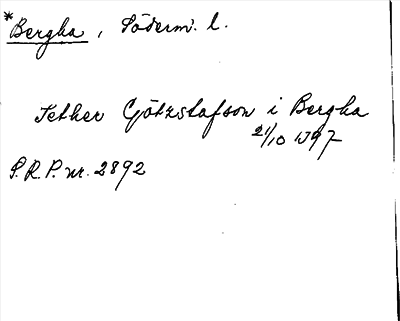 *Bergha, Söderm. l.
Pether Götzstafson i Bergha
21/10 1397
S.R.P. nr. 2892